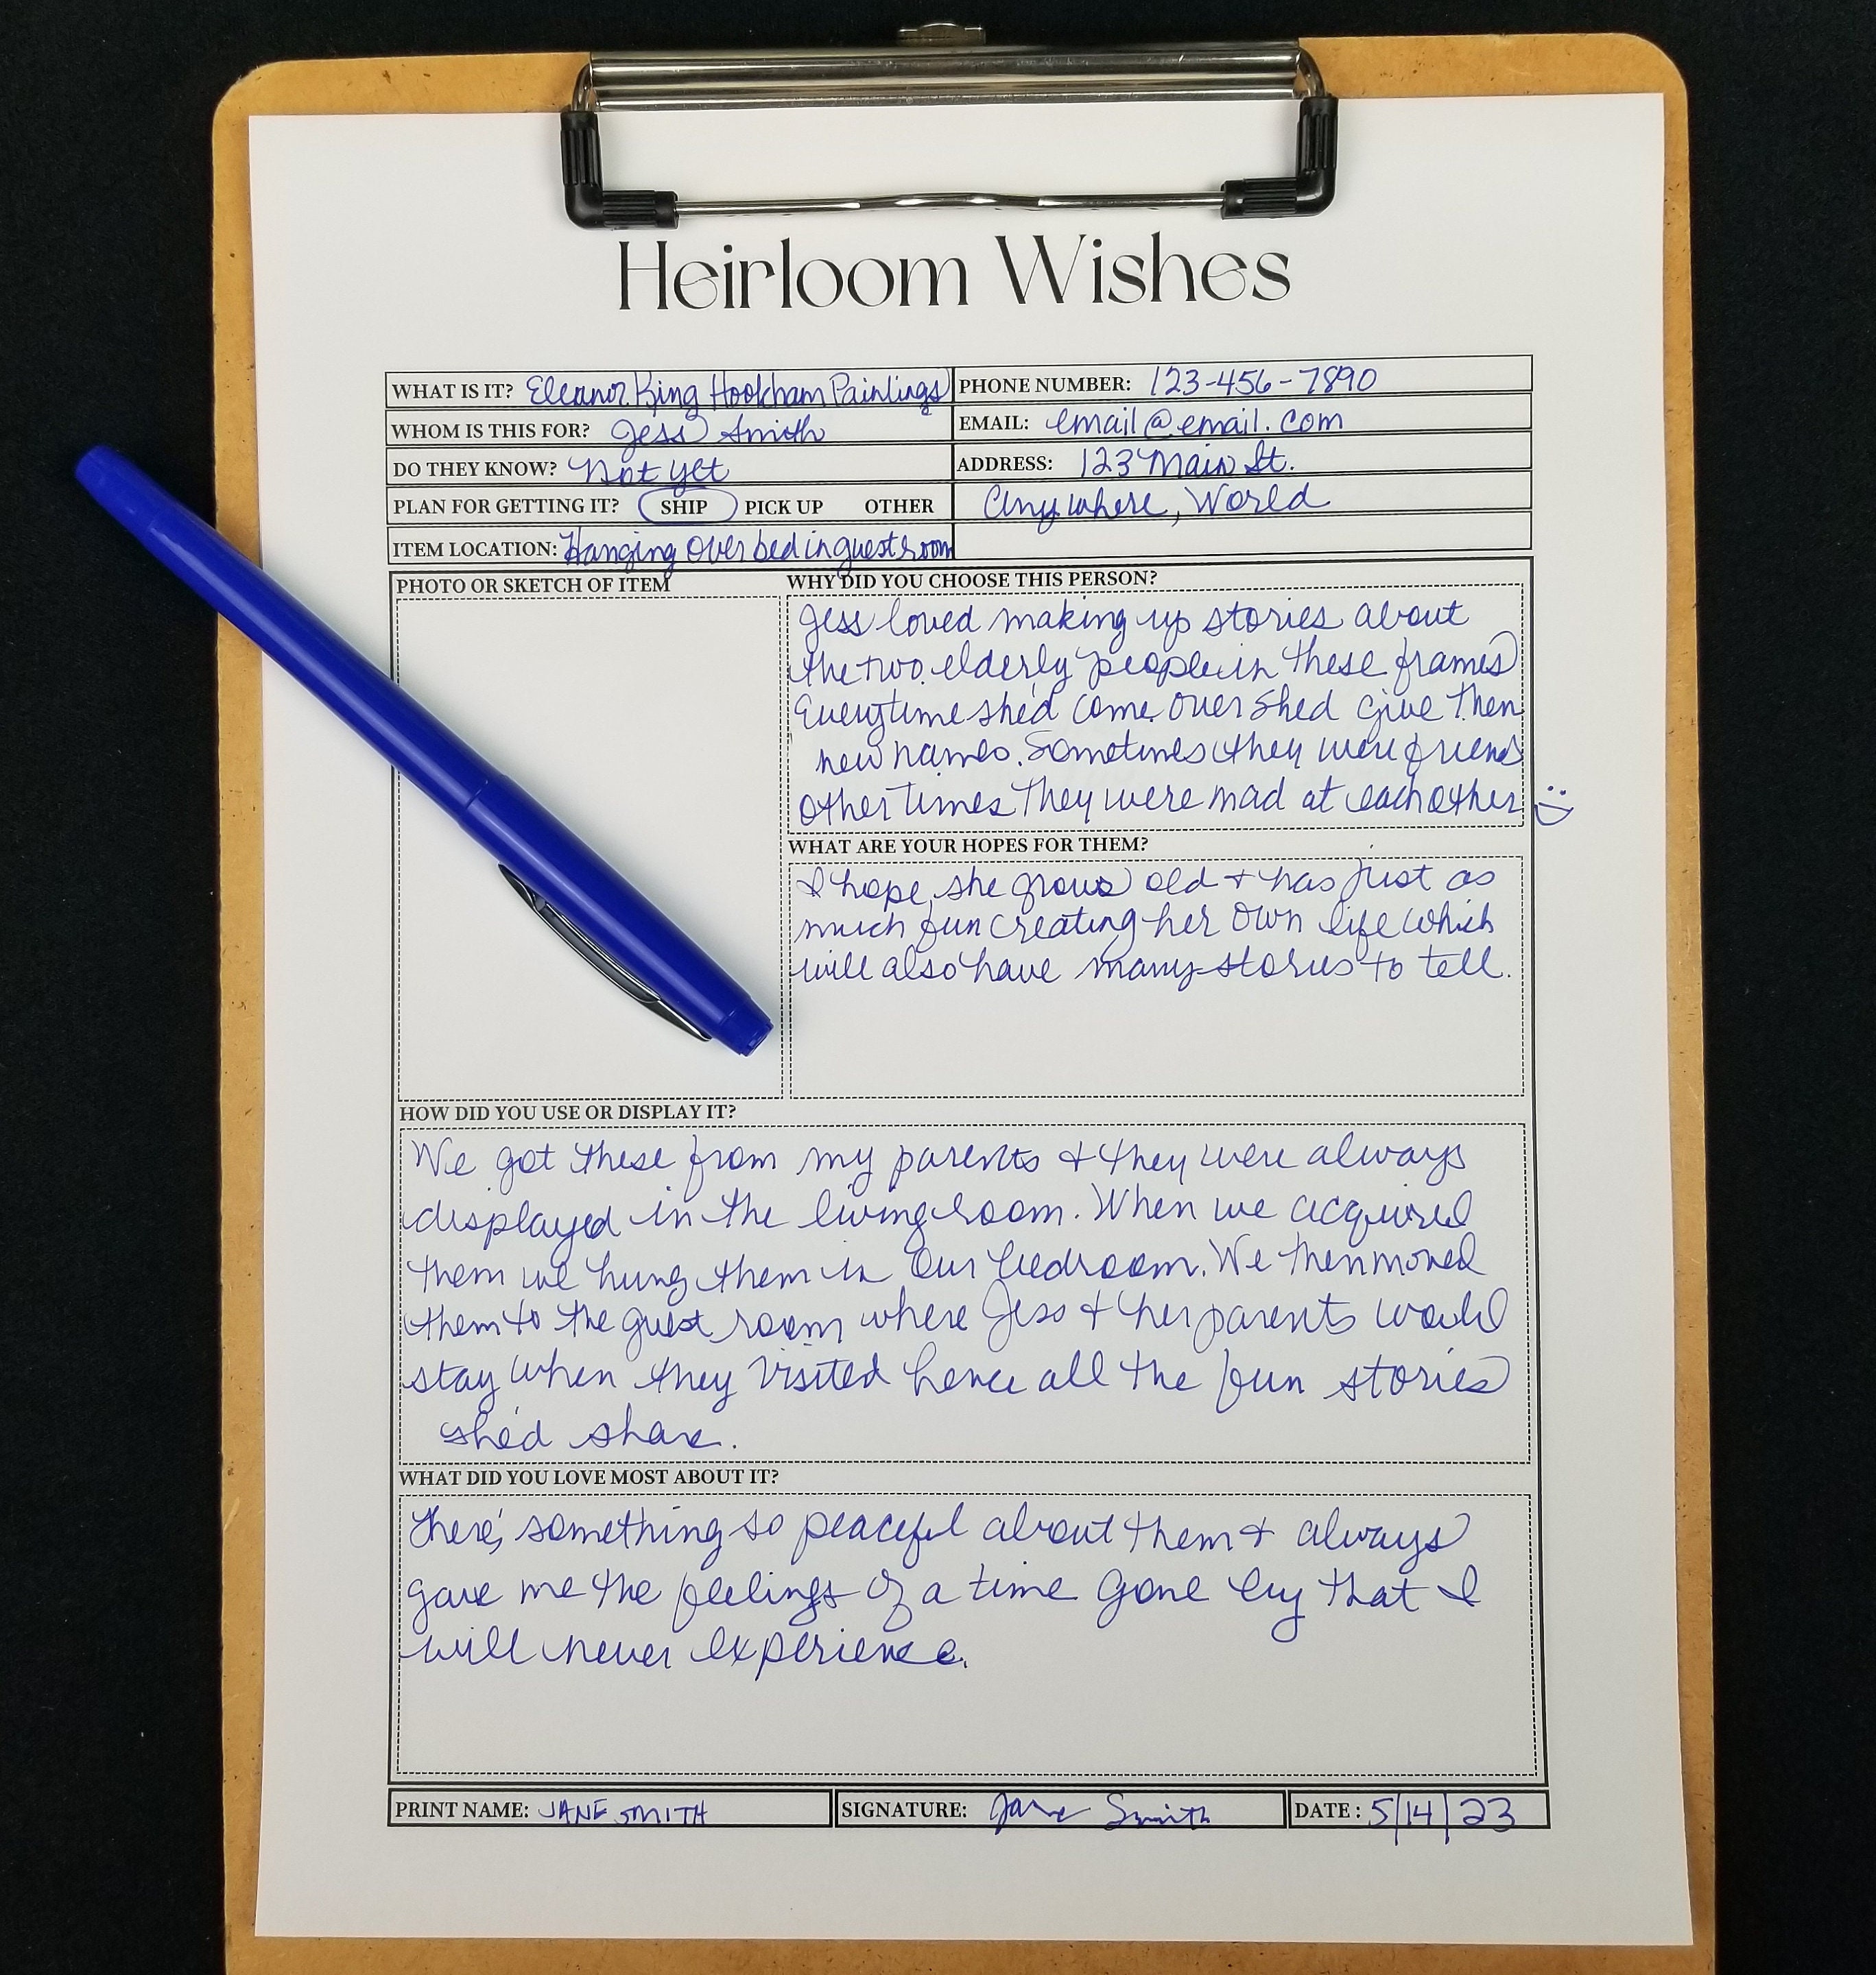 Heirloom Wishes
WHAT IS IT? Eleanor King Hookham Paintings
PHONE NUMBER: 123-456-7890
WHOM IS THIS FOR? Jess Smith
EMAIL: email@email.com
DO THEY KNOW? Not yet
ADDRESS: 123 Main St.
PLAN FOR GETTING IT? SHIP PICK UP OTHER
Anywhere, World
ITEM LOCATION: Hanging over bed in guest room
PHOTO OR SKETCH OF ITEM
WHY DID YOU CHOOSE THIS PERSON?
Jess loved making up stories about
the two elderly people in these frames
Everytime she'd come over shed give them
new names. Sometimes they were friends
other times they were mad at each other :)
WHAT ARE YOUR HOPES FOR THEM?
I hope she grows old + has just as
much fun creating her own life which
will also have many stories to tell.
HOW DID YOU USE OR DISPLAY IT?
We got these from my parents + they were always
displayed in the living room. When we acquired
them we hung them in our bedroom. We then moved
them to the guest room where Jess + her parents would
stay when they visited hence all the fun stories
she'd share.
WHAT DID YOU LOVE MOST ABOUT IT?
There's something so peaceful about them + always
gave me the feelings of a time gone by that I
will never experience.
PRINT NAME: JANE SMITH
SIGNATURE: Jane Smith
DATE: 5/14/23